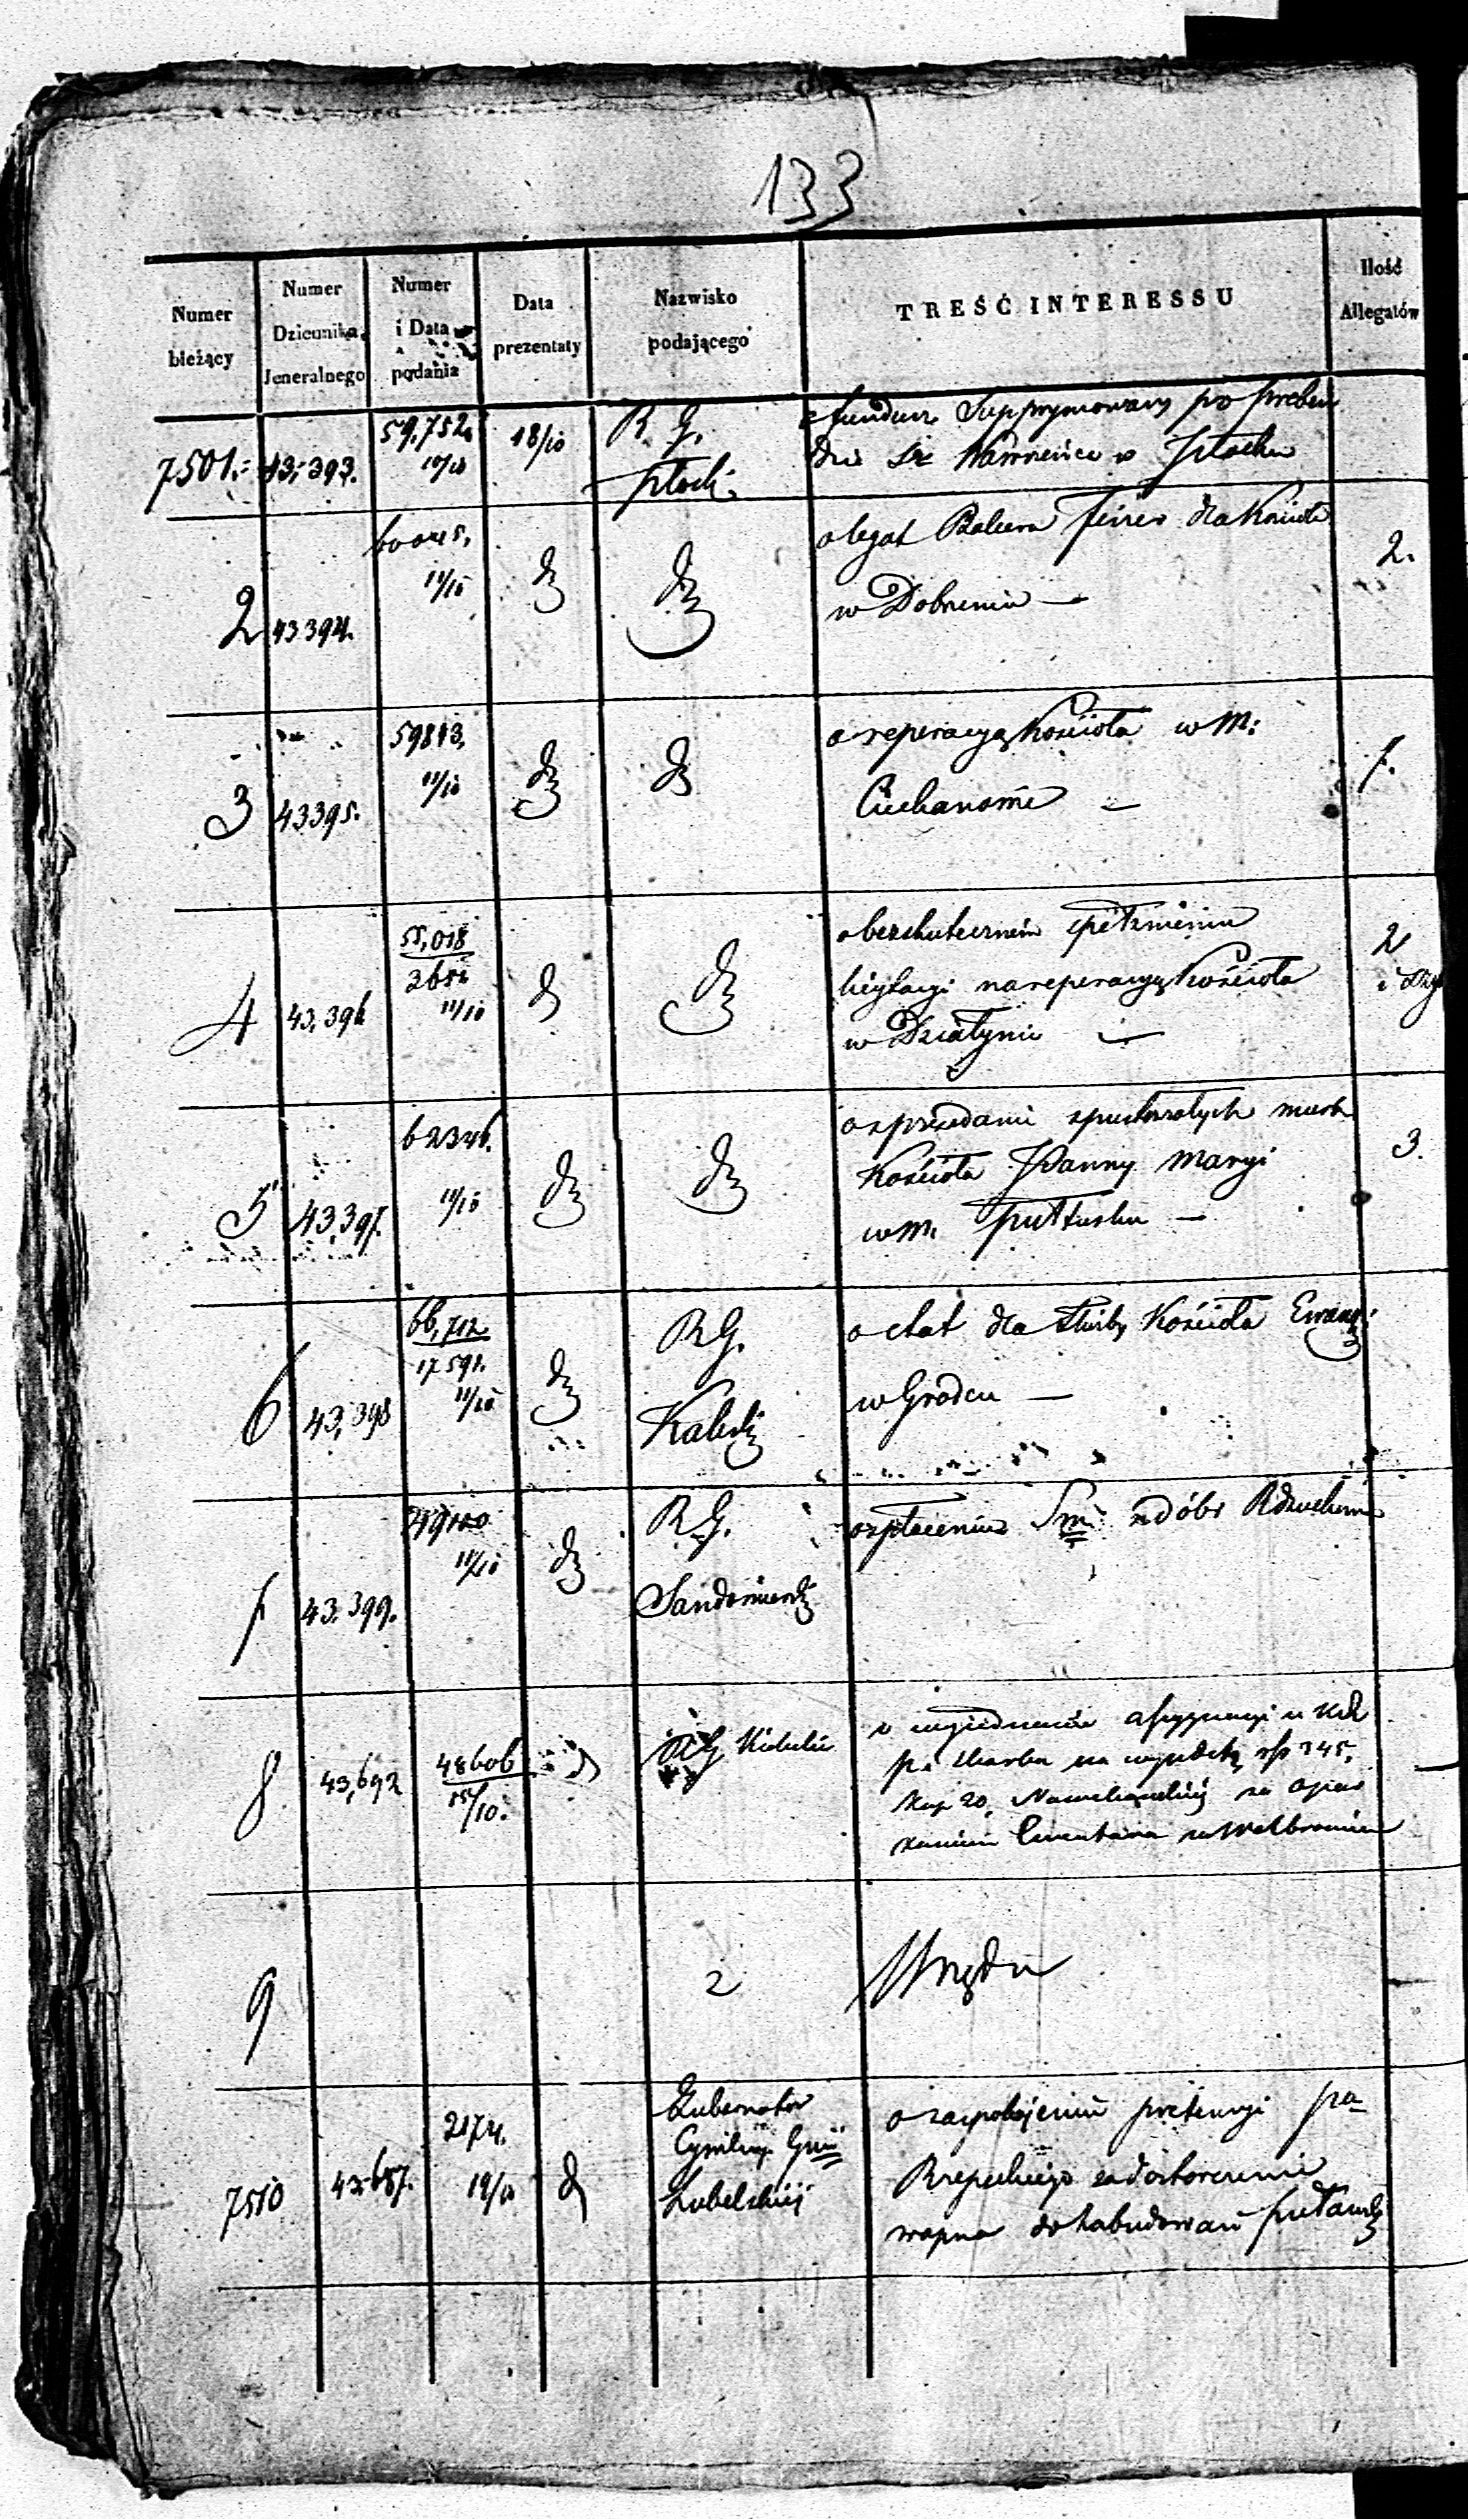 133
Numer bieżący
Numer Dziennika Jeneralnego
Numer i Data podania
Data prezentaty
Nazwisko podającego
TREŚĆ INTERESSU
Ilość Allegatów
7501. 43,393. 59,752. 10/10 18/10 R. G. Płocki
o fundusz Supprymowany po preben
dzie Śgo Wawrzeńca w Płocku
2 43394. 11/10 dto dto
o legat dla Kościoła 2.
w Dobrzeniu —
3 43395. 59813. 11/10 dto dto
o reperacyą Kościoła w M: 1.
Ciechanowie —
4 43,396 55,018 11/10 dto dto
o bezskutecznem spełznieniu 2
licytacyi na reperacyą Kościoła
w Działyniu —
5 43,397. 62346. 11/10 dto dto
o sprzedanie spustoszałych murów 3.
Kościoła Panny Maryi
w M. Pułtusku —
6 43,398 66,712 17591. 11/10 dto R G. Kaliski
o etat dla służby Kościoła Ewang:
w Grodcu —
7 43.399. 11/10 dto R. G. Sandomierski
o spłacenie z dóbr
8 43,692 48606 15/10. d RG Kielecki
o wyjednanie assygnacyi u KR
P. i Skarbu na wypłatę rsr 345,
kop 20,
w Wolbromiu
9 Urzędu
7510 43,687. 2174. 19/10 d Gubernator
Cywilny Gnii
Lubelskiej
o zaspokojenie pretensyi
Rzepeckiego za dostarczenie
wapna do zabudowań Puławsk